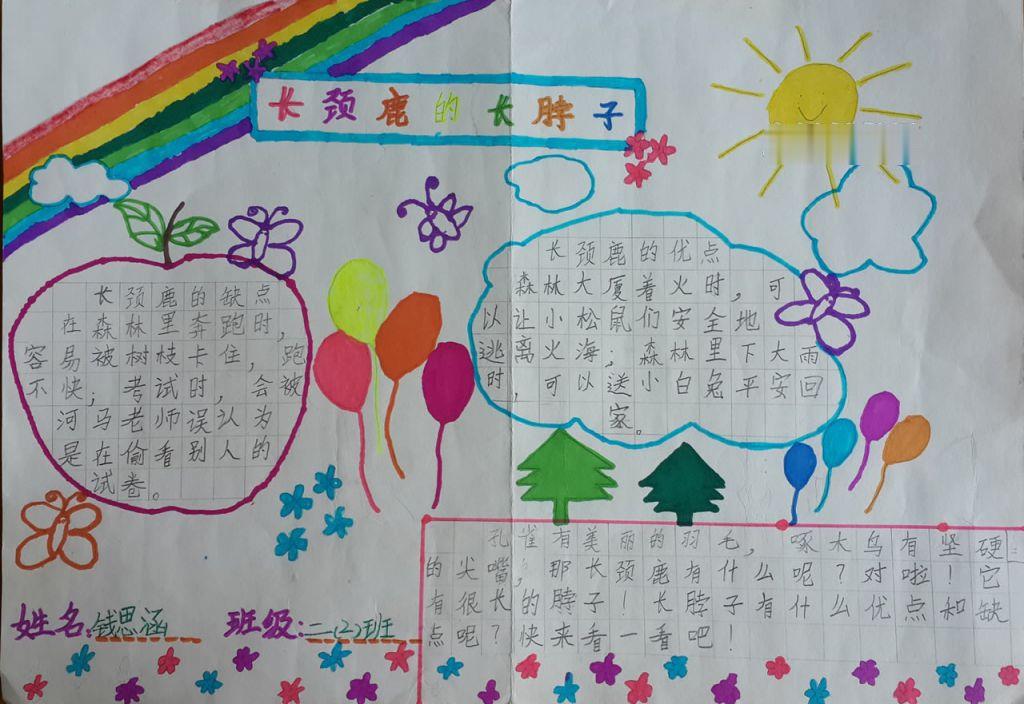 长颈鹿的长脖子
长颈鹿的缺点
在森林里奔跑时，
容易被树枝卡住，跑
不快；考试时，会被
河马老师误认为
是在偷看别人的
试卷。
长颈鹿的优点
森林大厦着火时，可
以让小松鼠们安全地
逃离火海；森林里下大雨
时，可以送小白兔平安回
家。
孔雀有美丽的羽毛，啄木鸟有坚硬
的尖嘴，那长颈鹿有什么呢？对啦！它
有很长的脖子！长脖子有什么优点和缺
点呢？快来看一看吧！
姓名：钱思涵 班级：二（2）班